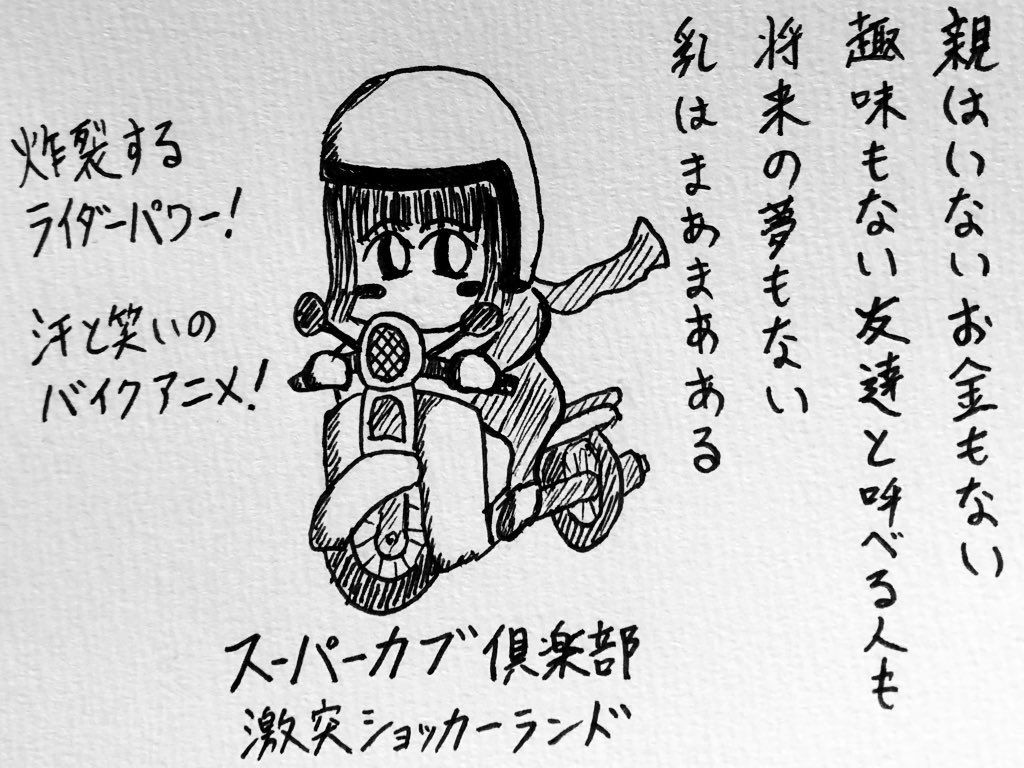 親はいないお金もない
趣味もない友達と呼べる人も
将来の夢もない
乳はまあまあある
炸裂する
ライダーパワー!
汗と笑いの
バイクアニメ!
スーパーカブ倶楽部
激突ショッカーランド